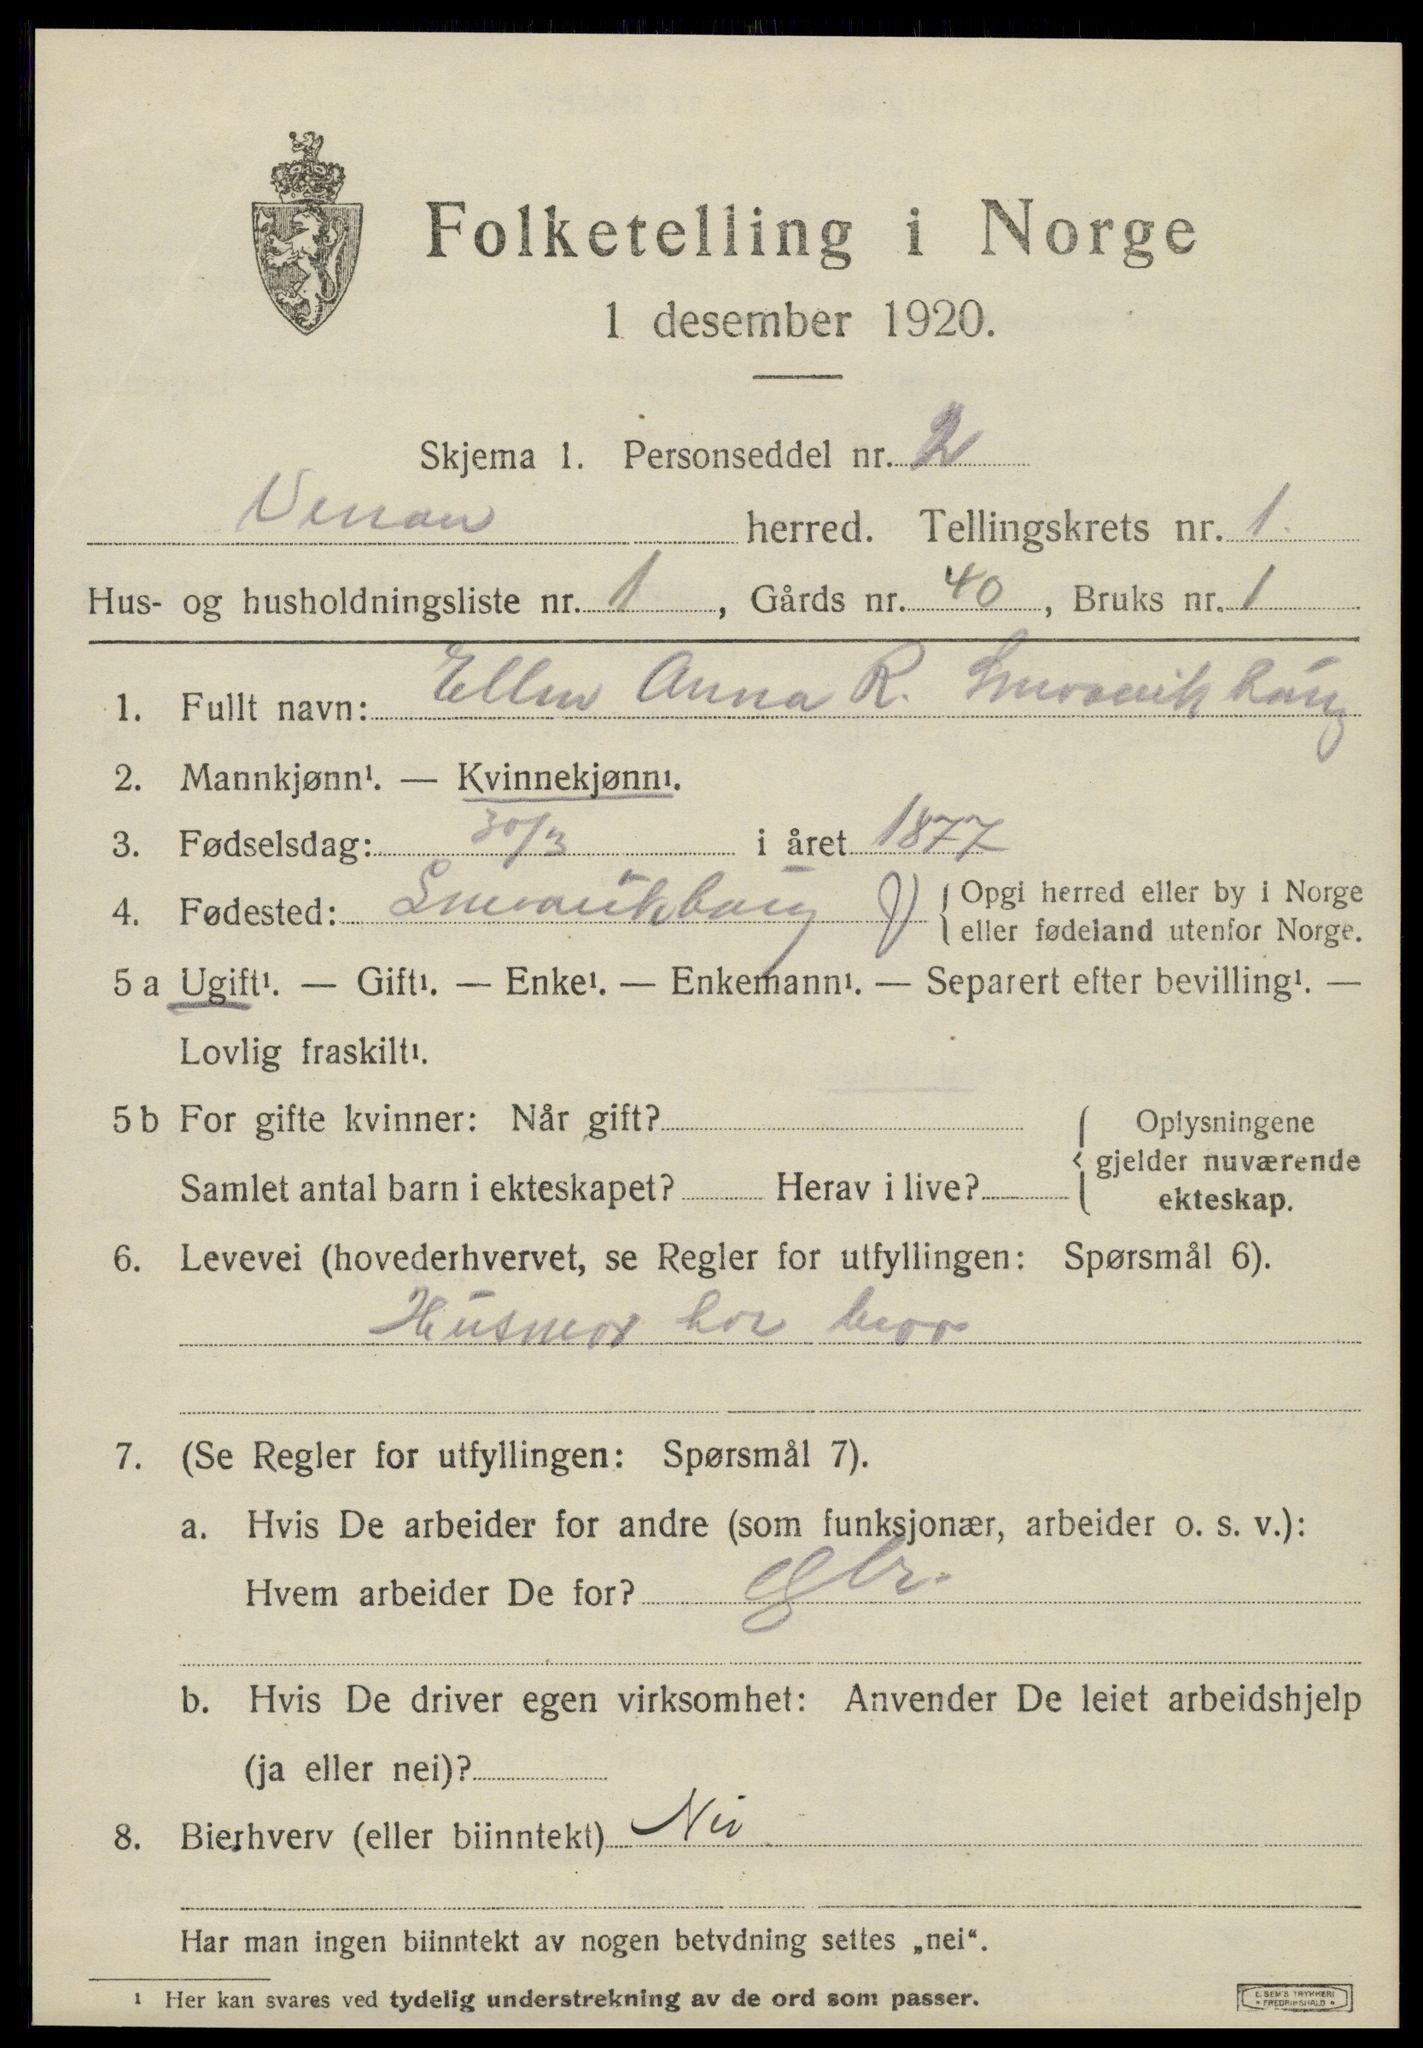 Folketelling i Norge
1 desember 1920.
Skjema 1. Personseddel nr. 2
herred. Tellingskrets nr. 1.
Hus- og husholdningsliste nr. 1, Gårds nr. 40, Bruks nr. 1
1. Fullt navn: Ellen Anna R.
2. Mannkjønn¹. — Kvinnekjønn¹.
3. Fødselsdag: 30/3 i året 1877
4. Fødested: { Opgi herred eller by i Norge
eller fødeland utenfor Norge.
5 a Ugift¹. — Gift¹. — Enke¹. — Enkemann¹. — Separert efter bevilling¹. —
Lovlig fraskilt¹.
5 b For gifte kvinner: Når gift?
Samlet antal barn i ekteskapet? Herav i live?
{ Oplysningene
gjelder nuværende
ekteskap.
6. Levevei (hovederhvervet, se Regler for utfyllingen: Spørsmål 6).
Husmor hos bror
7. (Se Regler for utfyllingen: Spørsmål 7).
a. Hvis De arbeider for andre (som funksjonær, arbeider o. s. v.):
Hvem arbeider De for?
b. Hvis De driver egen virksomhet: Anvender De leiet arbeidshjelp
(ja eller nei)?
8. Bierhverv (eller biinntekt) Nei
Har man ingen biinntekt av nogen betydning settes „nei“.
¹ Her kan svares ved tydelig understrekning av de ord som passer.
E. SEM'S TRYKKERI
FREDRIKSHALD